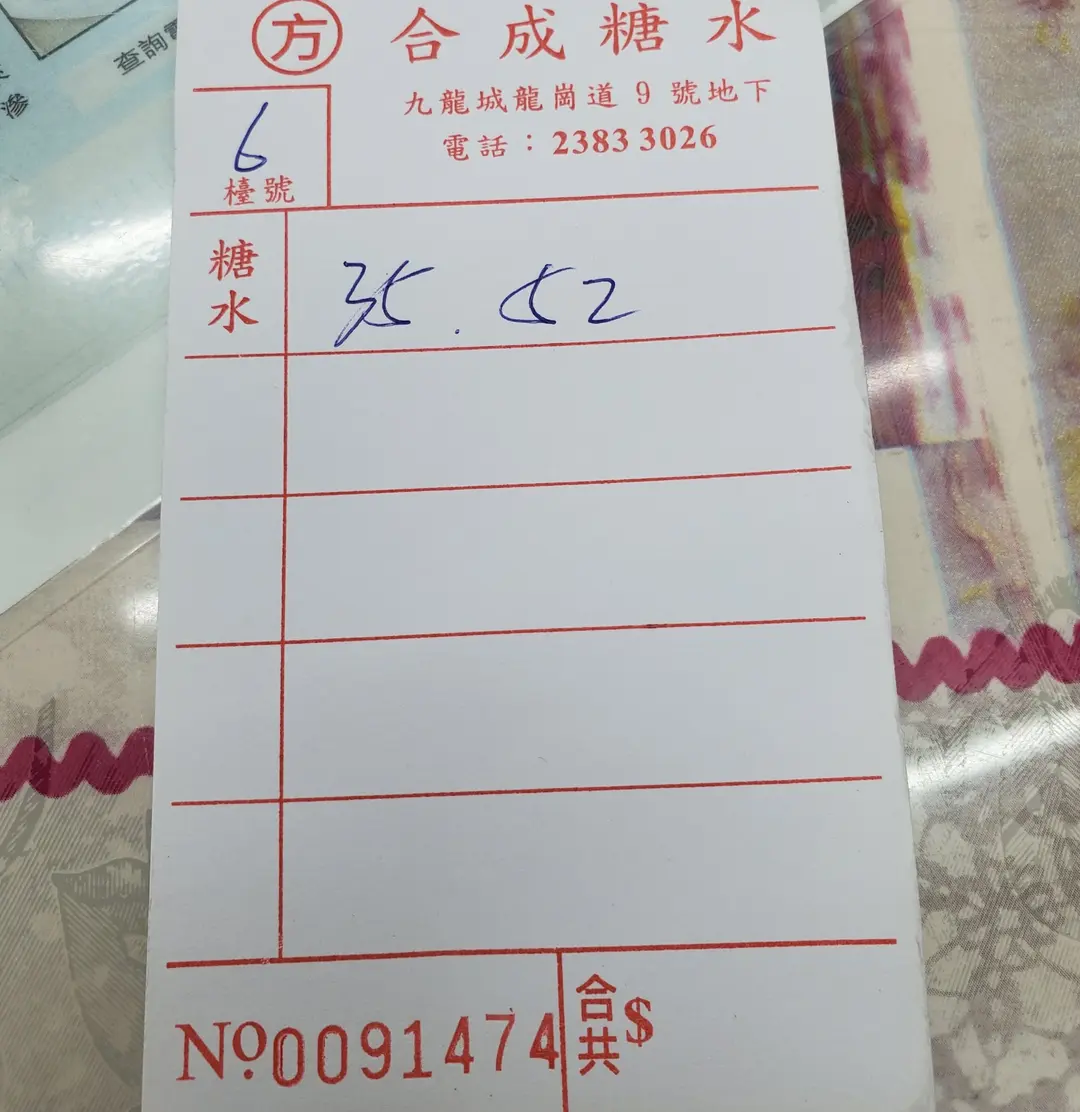 查詢
滲
方 合成糖水
九龍城龍崗道 9 號地下
電話：2383 3026
6
檯號
糖水
35 . 52
No. 0091474
合共 $